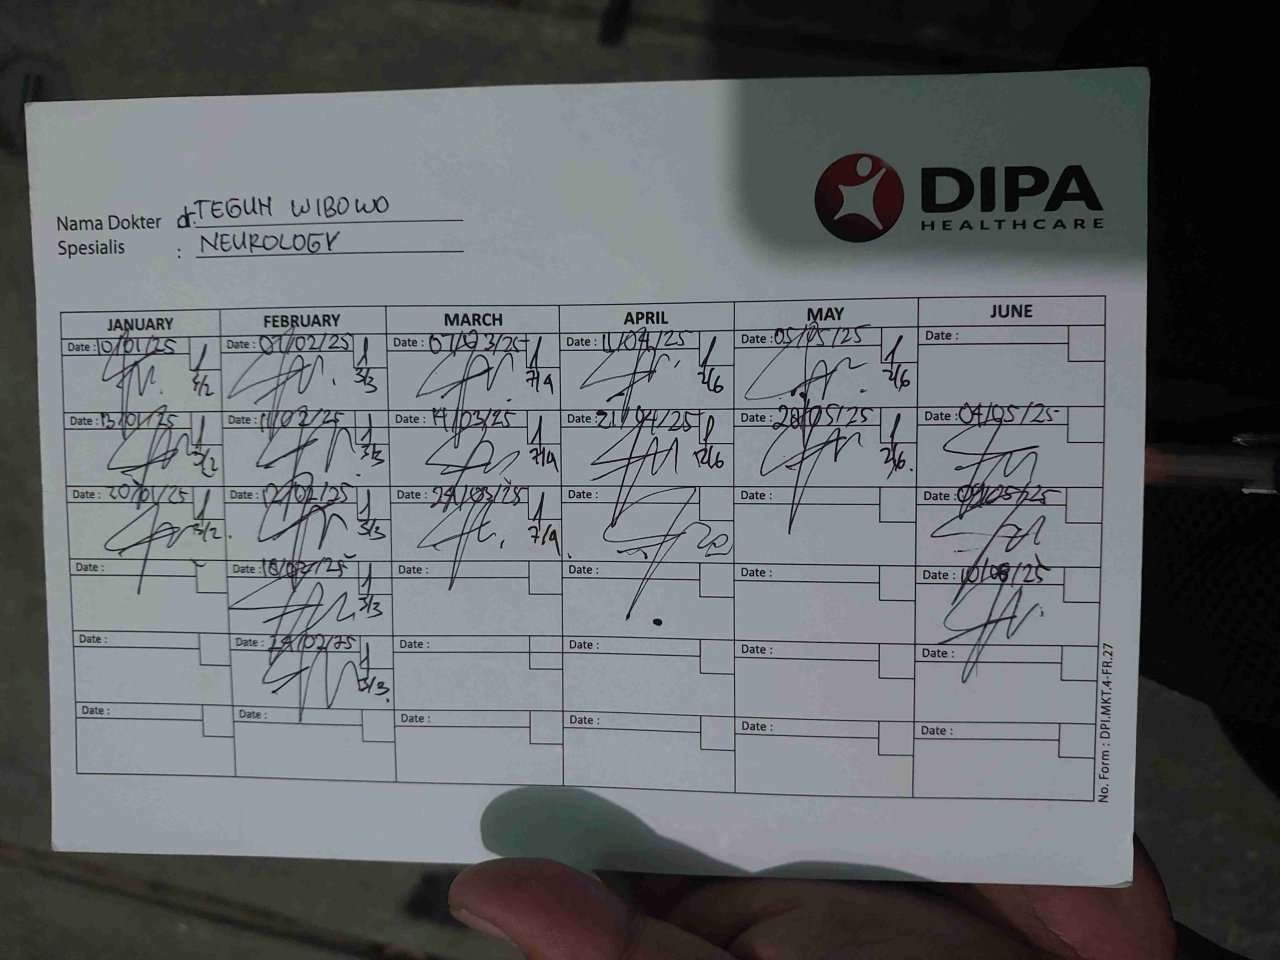 DIPA
HEALTHCARE
Nama Dokter dr. TEGUH WIBOWO
Spesialis : NEUROLOGY
JANUARY FEBRUARY MARCH APRIL MAY JUNE
Date : 10/01/25 Date : 07/02/25 Date : 07/03/25 Date : 11/04/25 Date : 05/05/25 Date :
3/2 3/3 7/4 2/6 2/6
Date : 13/01/25 Date : 11/02/25 Date : 14/03/25 Date : 21/04/25 Date : 20/05/25 Date : 04/05/25
3/2 3/3 7/4 2/6 2/6
Date : 20/01/25 Date : 12/02/25 Date : 24/03/25 Date : Date : Date : 09/05/25
3/2 3/3 7/4
Date : Date : 18/02/25 Date : Date : Date : Date : 10/06/25
3/3
Date : Date : 24/02/25 Date : Date : Date : Date :
3/3
Date : Date : Date : Date : Date : Date :
No. Form : DPI.MKT.4-FR.27